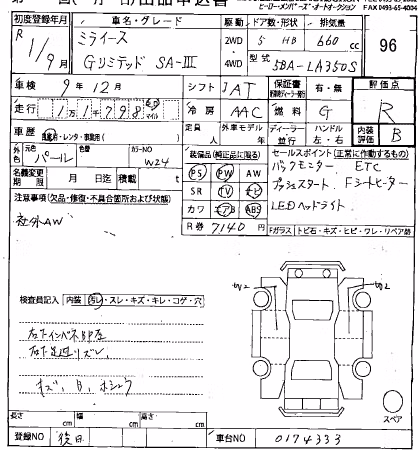 ヒーロー・メンバーズ・オートオークション FAX 0493-65-4004
初度登録年月 車名・グレード 駆動 ドア数・形状 排気量
R 1/9月 ミライース 2WD 5 HB 660cc 96
Gリミテッド SA-III 4WD 型式 5BA-LA350S
車検 9年12月 シフト IAT 保証書 有・無 評価点
走行 11,798 km マイル 冷房 AAC 燃料 G R
車歴 自家用・レンタ・事業用 定員 人 外車モデル 年 ディーラー 並行 ハンドル 左・右 内装評価 B
外色 パール 色替 カラーNO W24
名義変更期限 月 日迄 積載 t
装備品(純正品に限る) セールスポイント(正常に作動するもの)
PS PW AW バックモニター ETC
SR TV ナビ プッシュスタート Fシートヒーター
カワ エアB ABS LEDヘッドライト
R券 7140円
注意事項(欠品・修復・不具合箇所および状態)
社外AW
Fガラス トビ石・キズ・ヒビ・ワレ・リペア有
検査員記入 内装 汚レ・スレ・キズ・キレ・コゲ・穴
キズ、
スペア
長さ cm 幅 cm 高さ cm
登録NO 後日 車台NO 0174333